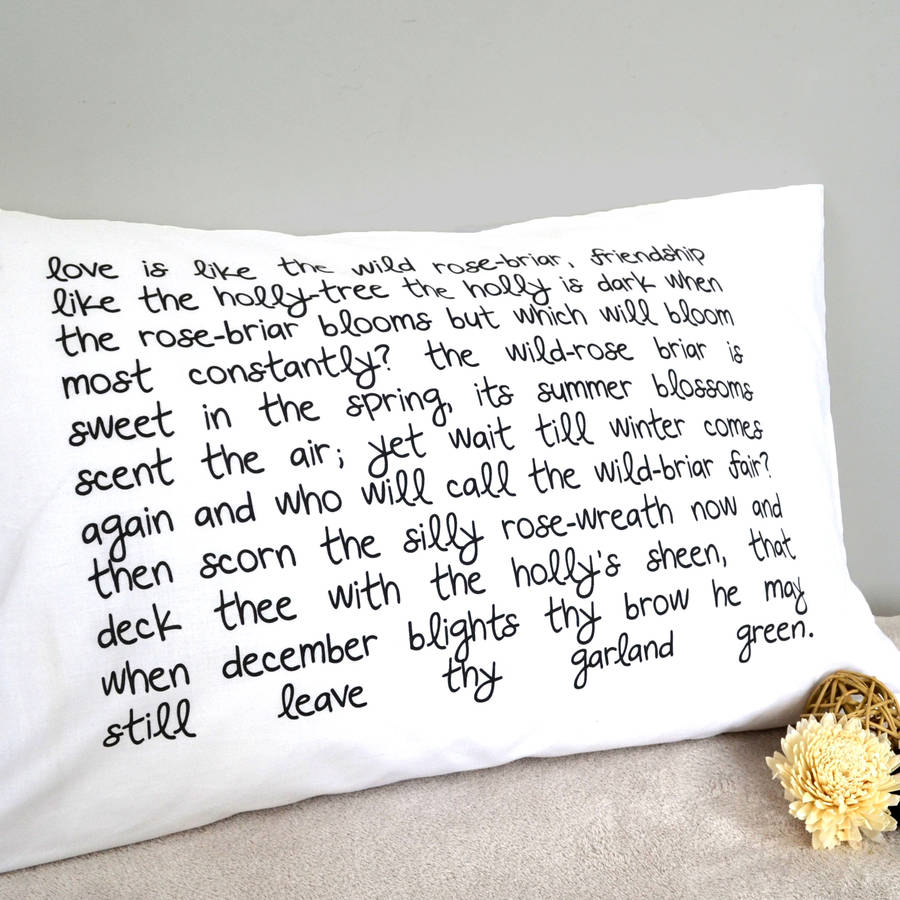 love is like the wild rose-briar, friendship
like the holly-tree the holly is dark when
the rose-briar blooms but which will bloom
most constantly? the wild-rose briar is
sweet in the spring, its summer blossoms
scent the air; yet wait till winter comes
again and who will call the wild-briar fair?
then scorn the silly rose-wreath now and
deck thee with the holly's sheen, that
when december blights thy brow he may
still leave thy garland green.